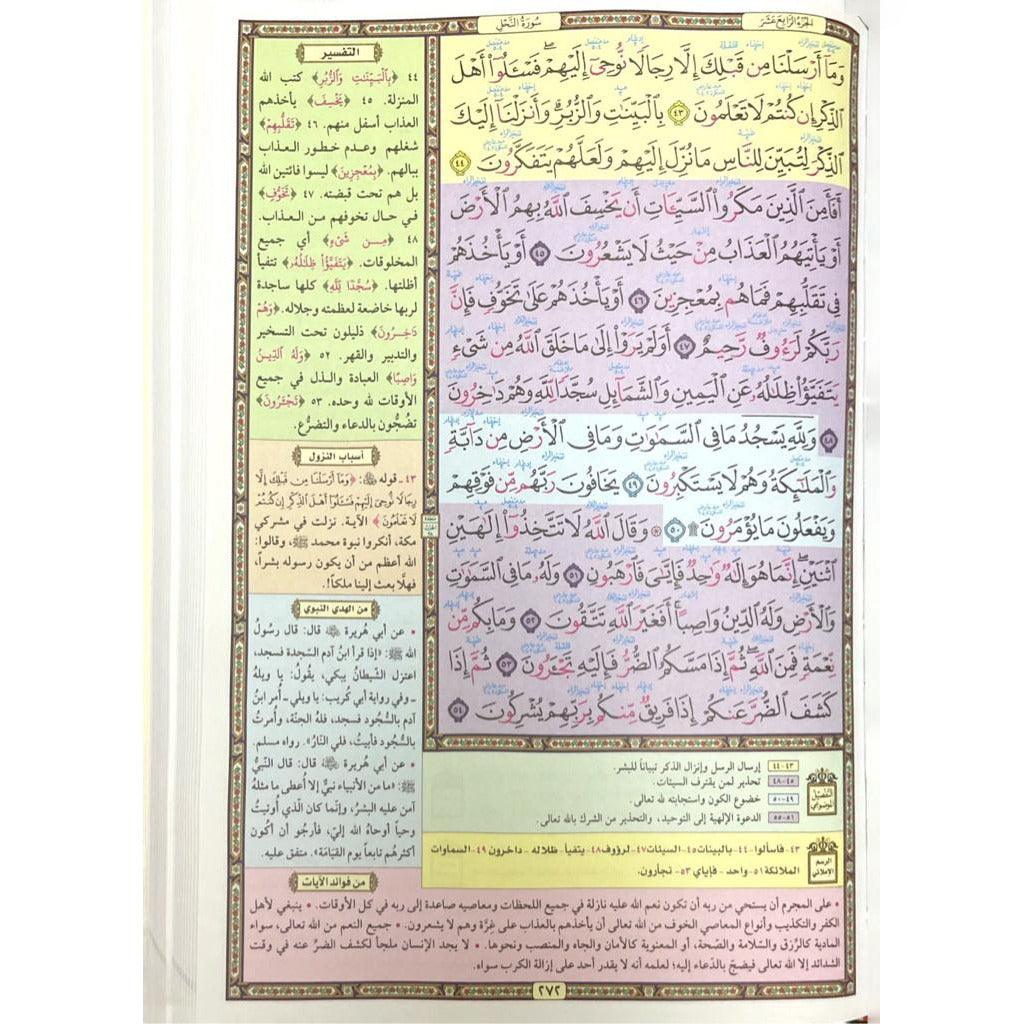 الجزء الرابع عشر
سورة النحل
وَمَآ أَرْسَلْنَا مِن قَبْلِكَ إِلَّا رِجَالًا نُّوحِىٓ إِلَيْهِمْ ۖ فَسْـَٔلُوٓا۟ أَهْلَ
ٱلذِّكْرِ إِن كُنتُمْ لَا تَعْلَمُونَ ٤٣ بِٱلْبَيِّنَـٰتِ وَٱلزُّبُرِ ۗ وَأَنزَلْنَآ إِلَيْكَ
ٱلذِّكْرَ لِتُبَيِّنَ لِلنَّاسِ مَا نُزِّلَ إِلَيْهِمْ وَلَعَلَّهُمْ يَتَفَكَّرُونَ ٤٤
أَفَأَمِنَ ٱلَّذِينَ مَكَرُوا۟ ٱلسَّيِّـَٔاتِ أَن يَخْسِفَ ٱللَّهُ بِهِمُ ٱلْأَرْضَ
أَوْ يَأْتِيَهُمُ ٱلْعَذَابُ مِنْ حَيْثُ لَا يَشْعُرُونَ ٤٥ أَوْ يَأْخُذَهُمْ
فِى تَقَلُّبِهِمْ فَمَا هُم بِمُعْجِزِينَ ٤٦ أَوْ يَأْخُذَهُمْ عَلَىٰ تَخَوُّفٍ فَإِنَّ
رَبَّكُمْ لَرَءُوفٌ رَّحِيمٌ ٤٧ أَوَلَمْ يَرَوْا۟ إِلَىٰ مَا خَلَقَ ٱللَّهُ مِن شَىْءٍ
يَتَفَيَّؤُا۟ ظِلَـٰلُهُۥ عَنِ ٱلْيَمِينِ وَٱلشَّمَآئِلِ سُجَّدًا لِّلَّهِ وَهُمْ دَٰخِرُونَ
٤٨ وَلِلَّهِ يَسْجُدُ مَا فِى ٱلسَّمَـٰوَٰتِ وَمَا فِى ٱلْأَرْضِ مِن دَآبَّةٍ
وَٱلْمَلَـٰٓئِكَةُ وَهُمْ لَا يَسْتَكْبِرُونَ ٤٩ يَخَافُونَ رَبَّهُم مِّن فَوْقِهِمْ
وَيَفْعَلُونَ مَا يُؤْمَرُونَ ۩ ٥٠ ۞ وَقَالَ ٱللَّهُ لَا تَتَّخِذُوٓا۟ إِلَـٰهَيْنِ
ٱثْنَيْنِ ۖ إِنَّمَا هُوَ إِلَـٰهٌ وَٰحِدٌ ۖ فَإِيَّـٰىَ فَٱرْهَبُونِ ٥١ وَلَهُۥ مَا فِى ٱلسَّمَـٰوَٰتِ
وَٱلْأَرْضِ وَلَهُ ٱلدِّينُ وَاصِبًا ۚ أَفَغَيْرَ ٱللَّهِ تَتَّقُونَ ٥٢ وَمَا بِكُم مِّن
نِّعْمَةٍ فَمِنَ ٱللَّهِ ۖ ثُمَّ إِذَا مَسَّكُمُ ٱلضُّرُّ فَإِلَيْهِ تَجْـَٔرُونَ ٥٣ ثُمَّ إِذَا
كَشَفَ ٱلضُّرَّ عَنكُمْ إِذَا فَرِيقٌ مِّنكُم بِرَبِّهِمْ يُشْرِكُونَ ٥٤
التفسير
٤٤ ﴿بِالْبَيِّنَـٰتِ وَالزُّبُرِ﴾ كتب الله
المنزلة. ٤٥ ﴿يَخْسِفَ﴾ يأخذهم
العذاب أسفل منهم. ٤٦ ﴿تَقَلُّبِهِمْ﴾
شغلهم وعدم خطور العذاب
ببالهم. ﴿بِمُعْجِزِينَ﴾ ليسوا فائتين الله
بل هم تحت قبضته. ٤٧ ﴿تَخَوُّفٍ﴾
في حال تخوفهم من العذاب.
٤٨ ﴿مِن شَىْءٍ﴾ أي جميع
المخلوقات. ﴿يَتَفَيَّؤُا ظِلَـٰلُهُ﴾ تتفيأ
أظلتها. ﴿سُجَّدًا لِّلَّهِ﴾ كلها ساجدة
لربها خاضعة لعظمته وجلاله. ﴿وَهُمْ
دَٰخِرُونَ﴾ ذليلون تحت التسخير
والتدبير والقهر. ٥٢ ﴿وَلَهُ ٱلدِّينُ
وَاصِبًا﴾ العبادة والذل في جميع
الأوقات لله وحده. ٥٣ ﴿تَجْـَٔرُونَ﴾
تضُجُّون بالدعاء والتضرُّع.
أسباب النزول
٤٣ - قوله ﷻ: ﴿وَمَآ أَرْسَلْنَا مِن قَبْلِكَ إِلَّا
رِجَالًا نُّوحِىٓ إِلَيْهِمْ فَسْـَٔلُوٓا۟ أَهْلَ ٱلذِّكْرِ إِن كُنتُمْ
لَا تَعْلَمُونَ﴾ الآية. نزلت في مشركي
مكة، أنكروا نبوة محمد ﷺ، وقالوا:
الله أعظم من أن يكون رسوله بشراً،
فهلَّا بعث إلينا ملكاً!.
من الهدي النبوي
• عن أبي هريرة قال: قال رسولُ
الله ﷺ: «إذا قرأ ابنُ آدم السَّجدة فسجد،
اعتزل الشَّيطانُ يبكي، يقُولُ: يا ويلهُ
- وفي رواية أبي كُريب: يا ويلي - أُمر ابنُ
آدم بالسُّجُود فسجد، فلهُ الجنَّة، وأُمرتُ
بالسُّجود فأبيتُ، فلي النَّارُ». رواه مسلم.
• عن أبي هُريرة قال: قال النَّبيُّ
ﷺ: «ما من الأنبياء نبيٌّ إلا أُعطي ما مثلهُ
آمن عليه البشرُ، وإنَّما كان الَّذي أُوتيتُ
وحياً أوحاهُ الله إليَّ، فأرجُو أن أكُون
أكثرهُم تابعاً يوم القيَامَة». متفق عليه.
التفصيل الموضوعي
٤٣-٤٤ إرسال الرسل وإنزال الذكر تبياناً للبشر.
٤٥-٤٨ تحذير لمن يقترف السيئات.
٤٩-٥٠ خضوع الكون واستجابته لله تعالى.
٥١-٥٥ الدعوة الإلهية إلى التوحيد، والتحذير من الشرك بالله تعالى.
الرسم الإملائي
٤٣- فاسألوا -٤٤- بالبينات ٤٥- السيئات ٤٧- لرؤوف ٤٨- يتفيأ- ظلاله - داخرون ٤٩- السماوات
الملائكة ٥١- واحد - فإياي ٥٣- تجأرون.
من فوائد الآيات
• على المجرم أن يستحي من ربه أن تكون نعم الله عليه نازلة في جميع اللحظات ومعاصيه صاعدة إلى ربه في كل الأوقات. • ينبغي لأهل
الكفر والتكذيب وأنواع المعاصي الخوف من الله تعالى أن يأخذهم بالعذاب على غِرَّة وهم لا يشعرون. • جميع النعم من الله تعالى، سواء
المادية كالرِّزق والسَّلامة والصِّحة، أو المعنوية كالأمان والجاه والمنصب ونحوها. • لا يجد الإنسان ملجأ لكشف الضرِّ عنه في وقت
الشدائد إلا الله تعالى فيضجّ بالدّعاء إليه؛ لعلمه أنه لا يقدر أحد على إزالة الكرب سواه.
٢٧٢